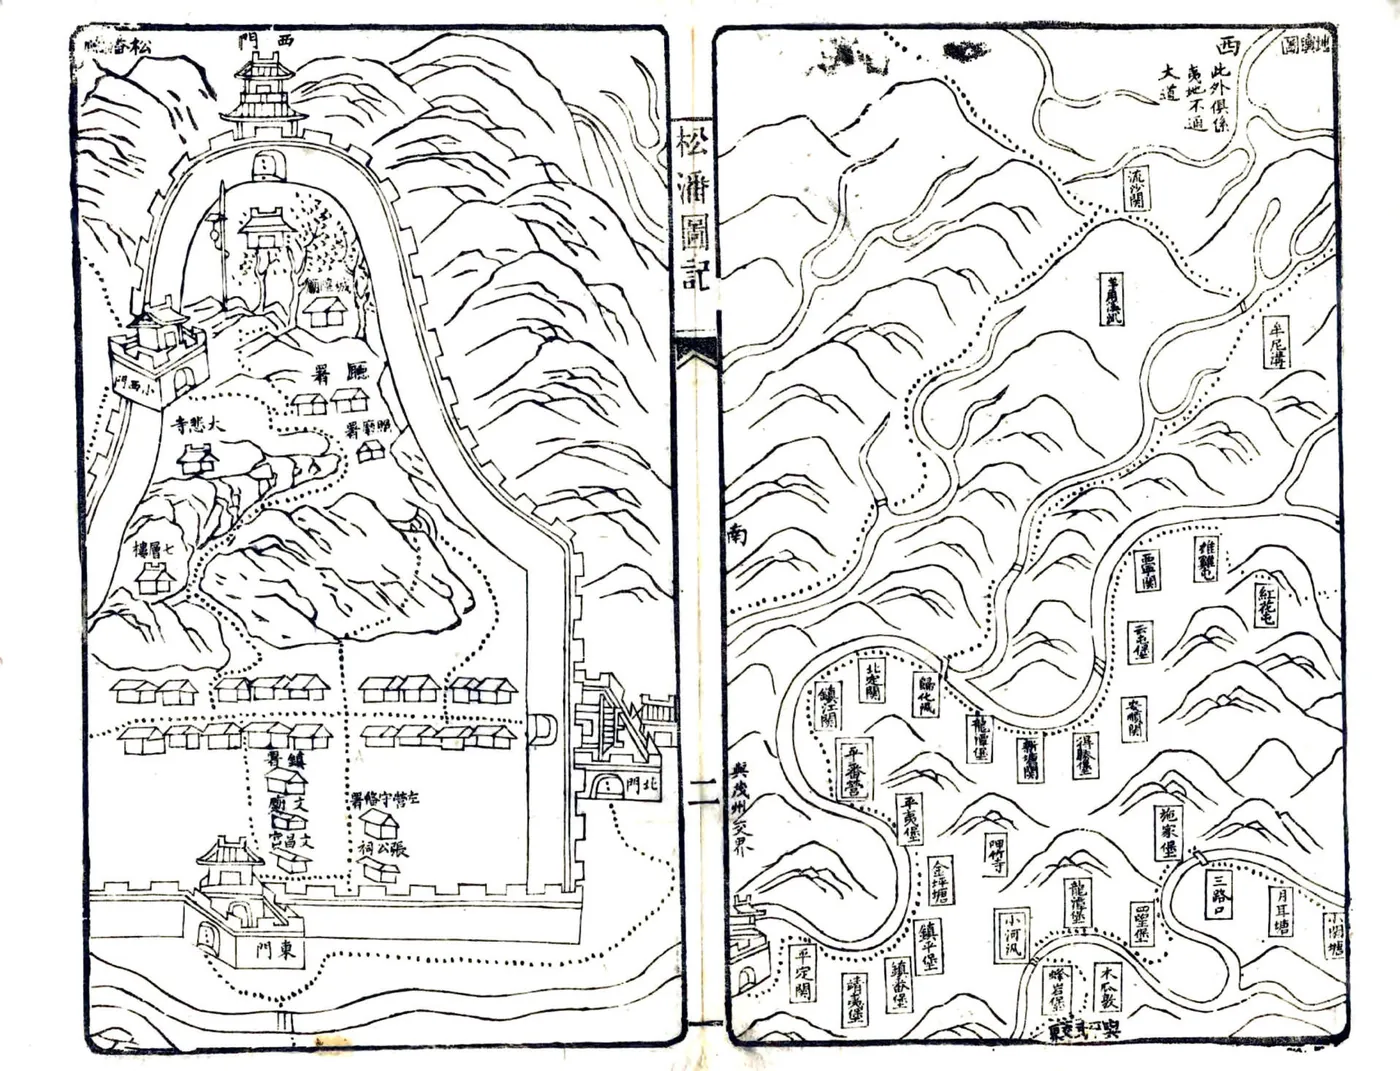 地輿圖
西
此外俱係
夷地不通
大道
流沙關
牟尼溝
南
雄雞屯
西寧關
紅花屯
云屯堡
安順關
北定關
歸化城
鎮江關
龍潭堡
新塘關
得勝堡
平番營
與茂州交界
平夷堡
呷竹寺
施家堡
金坪塘
三路口
月耳塘
小關塘
龍潭堡
四望堡
小河汛
鎮平堡
平定關
靖夷堡
鎮番堡
蜂岩堡
木瓜墩
松潘圖記
二
松潘
西門
城隍廟
小西門
廳署
大悲寺
照廳署
七層樓
鎮署
文廟
左營守俻署
文昌宮
張公祠
北門
東門